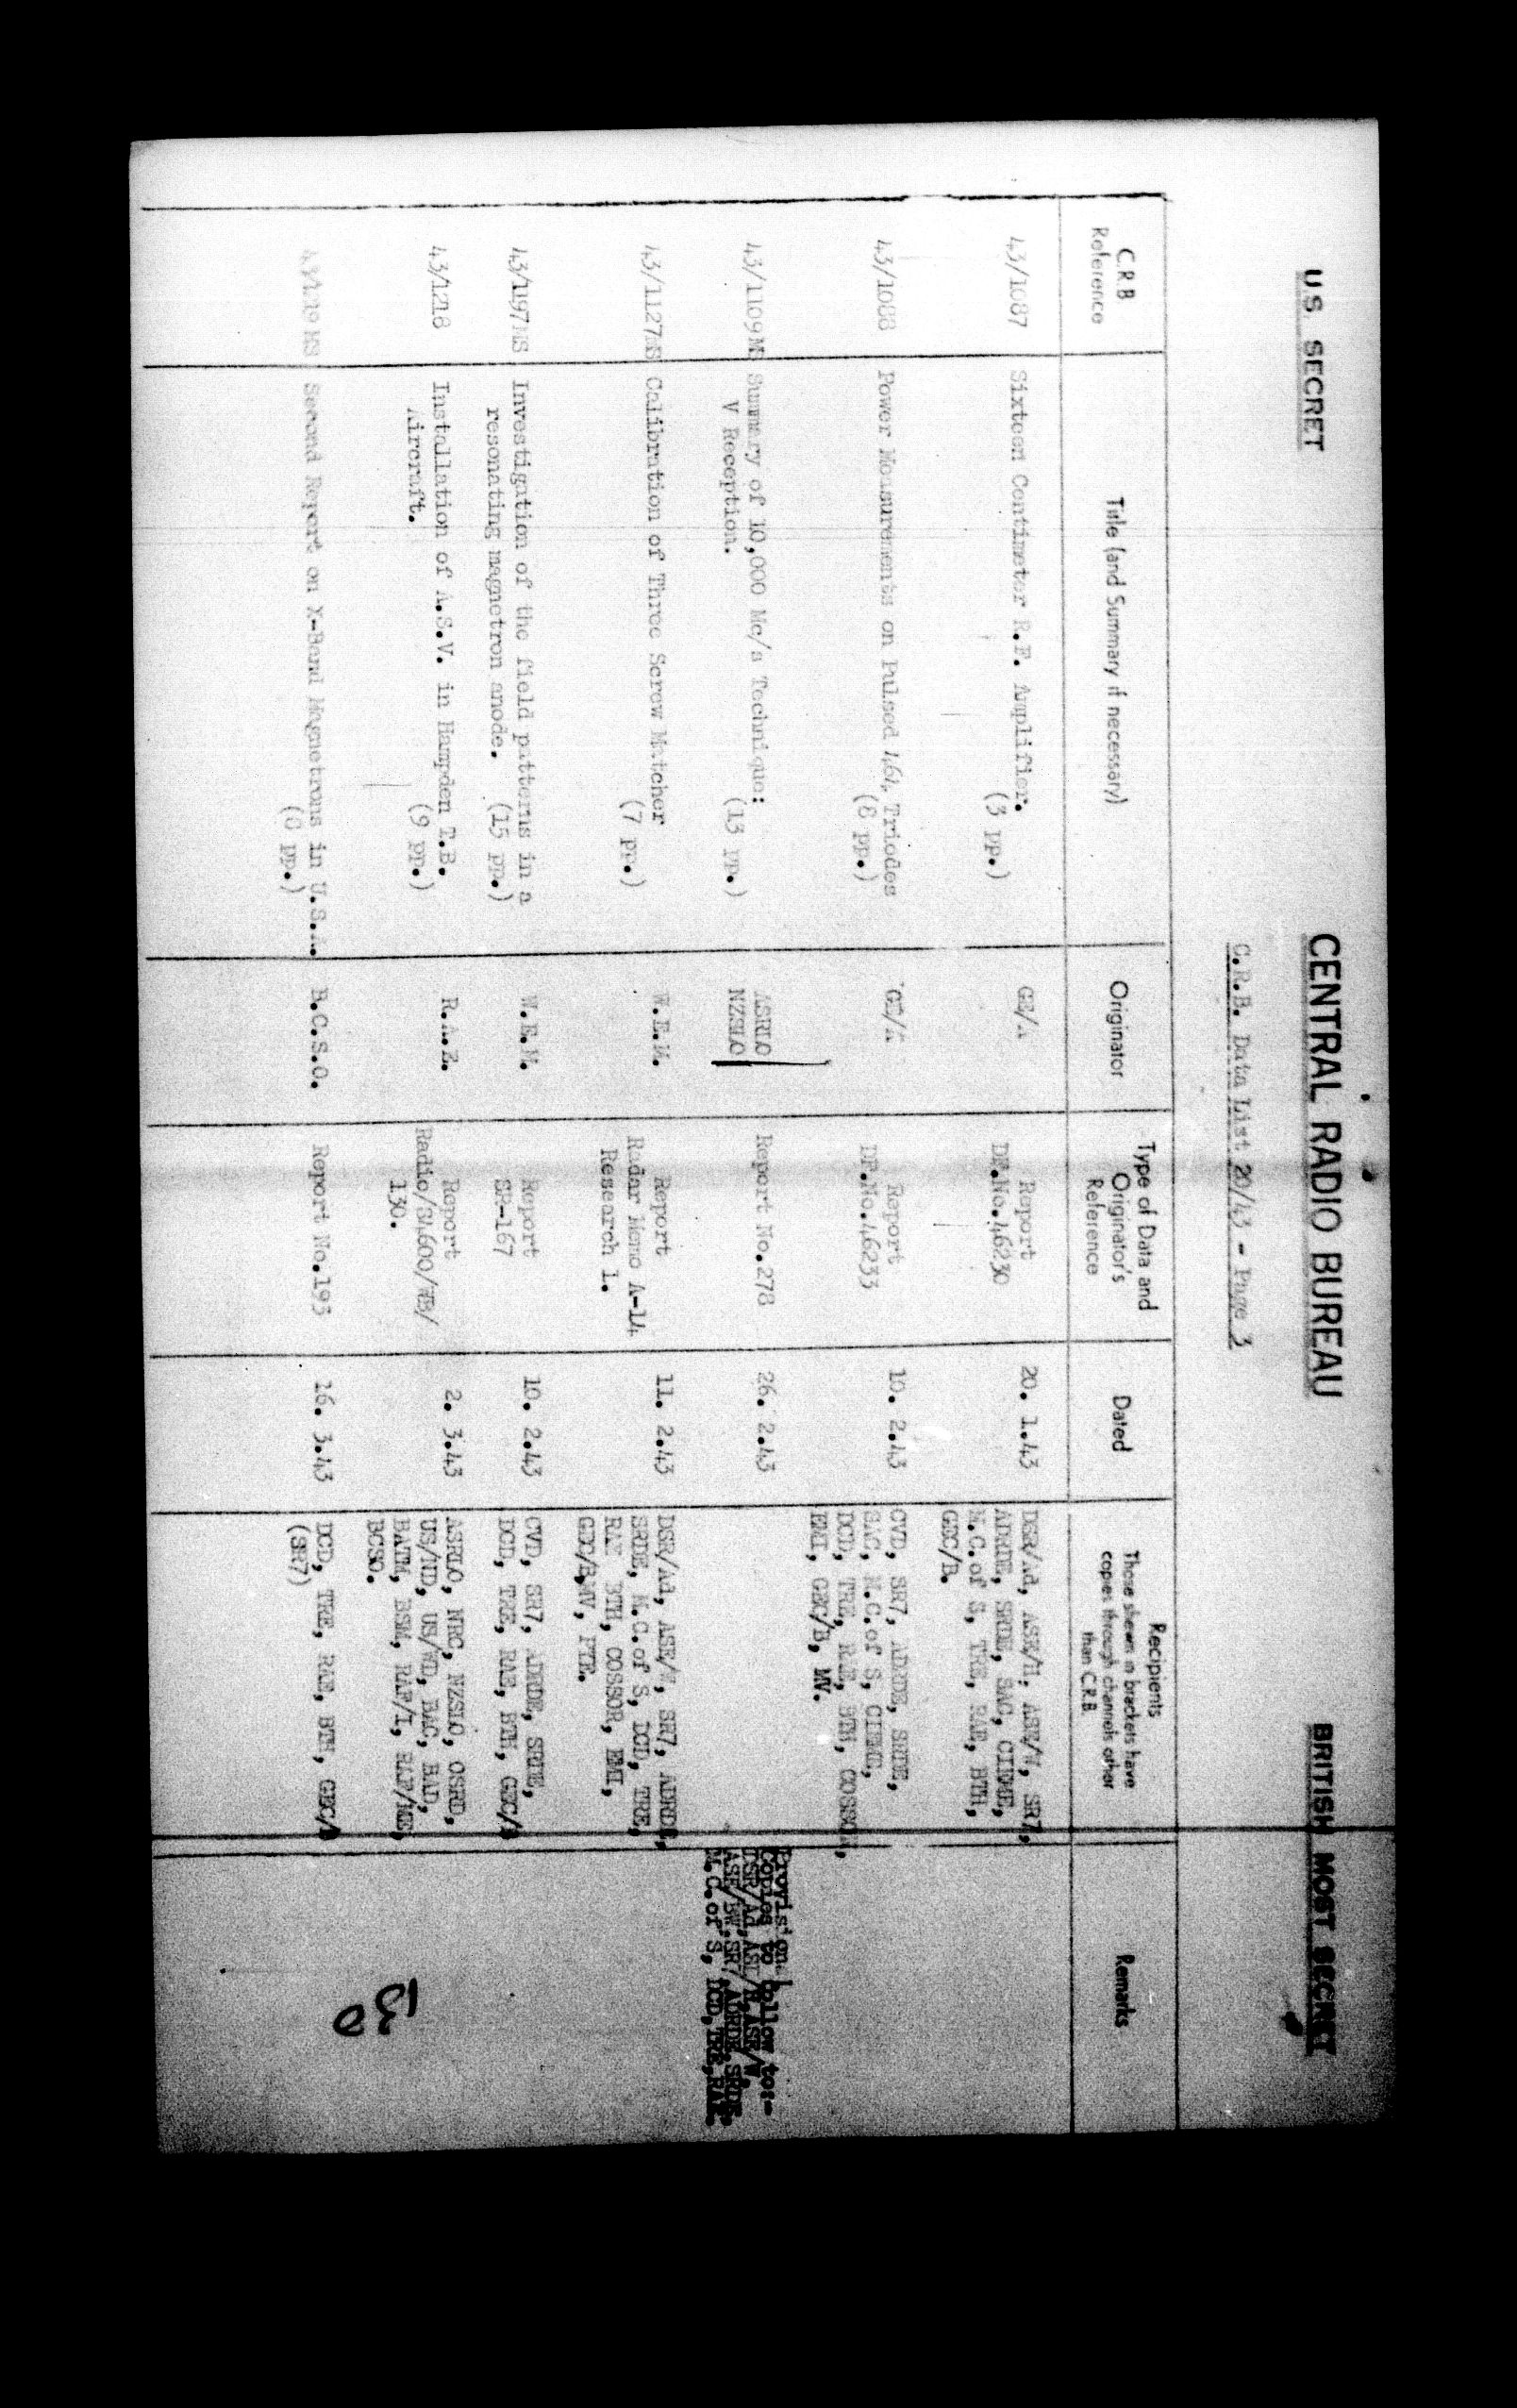 U.S. SECRET
CENTRAL RADIO BUREAU
BRITISH MOST SECRET
C.R.B. Data List 20/43 - Page 3
C.R.B
Reference
Title (and Summary if necessary)
Originator
Type of Data and
Originator's
Reference
Dated
Recipients
Those shewn in brackets have
copies through channels other
than C.R.B.
Remarks
43/1087
Sixteen Centimeter R.F. Amplifier.
(3 pp.)
GE/A
Report
DF.No.46230
20. 1.43
DSR/Ad, ASE/H, ASE/W, SR7,
ADRDE, SRDE, SAC, CIEME,
M.C.of S, TRE, RAE, BTH,
GEC/B.
43/1088
Power Measurements on Pulsed 464 Triodes
(8 pp.)
GE/A
Report
DF.No.46233
10. 2.43
CVD, SR7, ADRDE, SRDE,
SAC, M.C.of S, CIEME,
DCD, TRE, RAE, BTH, COSSOR,
EMI, GEC/B, MV.
43/1109MS
Summary of 10,000 Mc/s Technique:
V Reception.
(13 pp.)
ASRLO
NZSLO
Report No.278
26. 2.43
Provisional
Copies to follow to:-
DSR/Ad, ASE/H, ASE/W,
ASE/BW, SR7, ADRDE, SRDE,
M.C.of S, DCD, TRE, RAE.
43/1127MS
Calibration of Three Screw Matcher
(7 pp.)
W.E.M.
Report
Radar Memo A-14
Research 1.
11. 2.43
DSR/Ad, ASE/W, SR7, ADRDE,
SRDE, M.C.of S, DCD, TRE,
RAE BTH, COSSOR, EMI,
GEC/B, MV, PYE.
43/1197MS
Investigation of the field patterns in a
resonating magnetron anode.
(15 pp.)
W.E.M.
Report
SR-167
10. 2.43
CVD, SR7, ADRDE, SRDE,
DCD, TRE, RAE, BTH, GEC/B
43/1218
Installation of A.S.V. in Hampden T.B.
Aircraft.
(9 pp.)
R.A.E.
Report
Radio/S4600/WB/
130.
2. 3.43
ASRLO, NRC, NZSLO, OSRD,
US/ND, US/WD, BAC, BAD,
BATM, BSM, RAF/I, RAF/ME,
BCSO.
Second Report on X-Band Magnetrons in U.S.A.
(8 pp.)
B.C.S.O.
Report No.193
16. 3.43
DCD, TRE, RAE, BTH, GEC/B
(SR7)
130